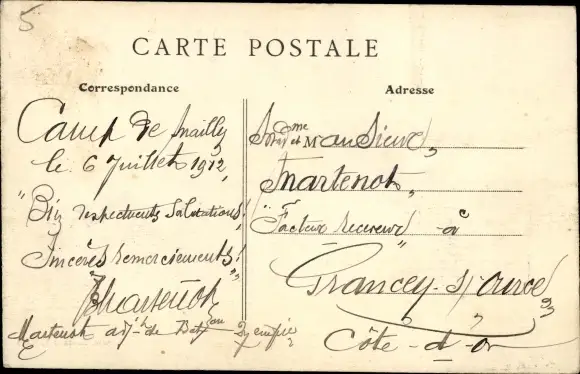 5
CARTE POSTALE
Correspondance
Camp de Mailly
le 6 Juillet 1912,
"Big respectuents Salutations!
Sincères remerciements!"
EMartenot
Martenot adjt de Batón
Adresse
Mme et Monsieur,
Martenot,
"Facteur receveur" à
Grancey-s/-Ource
Côte-d'Or